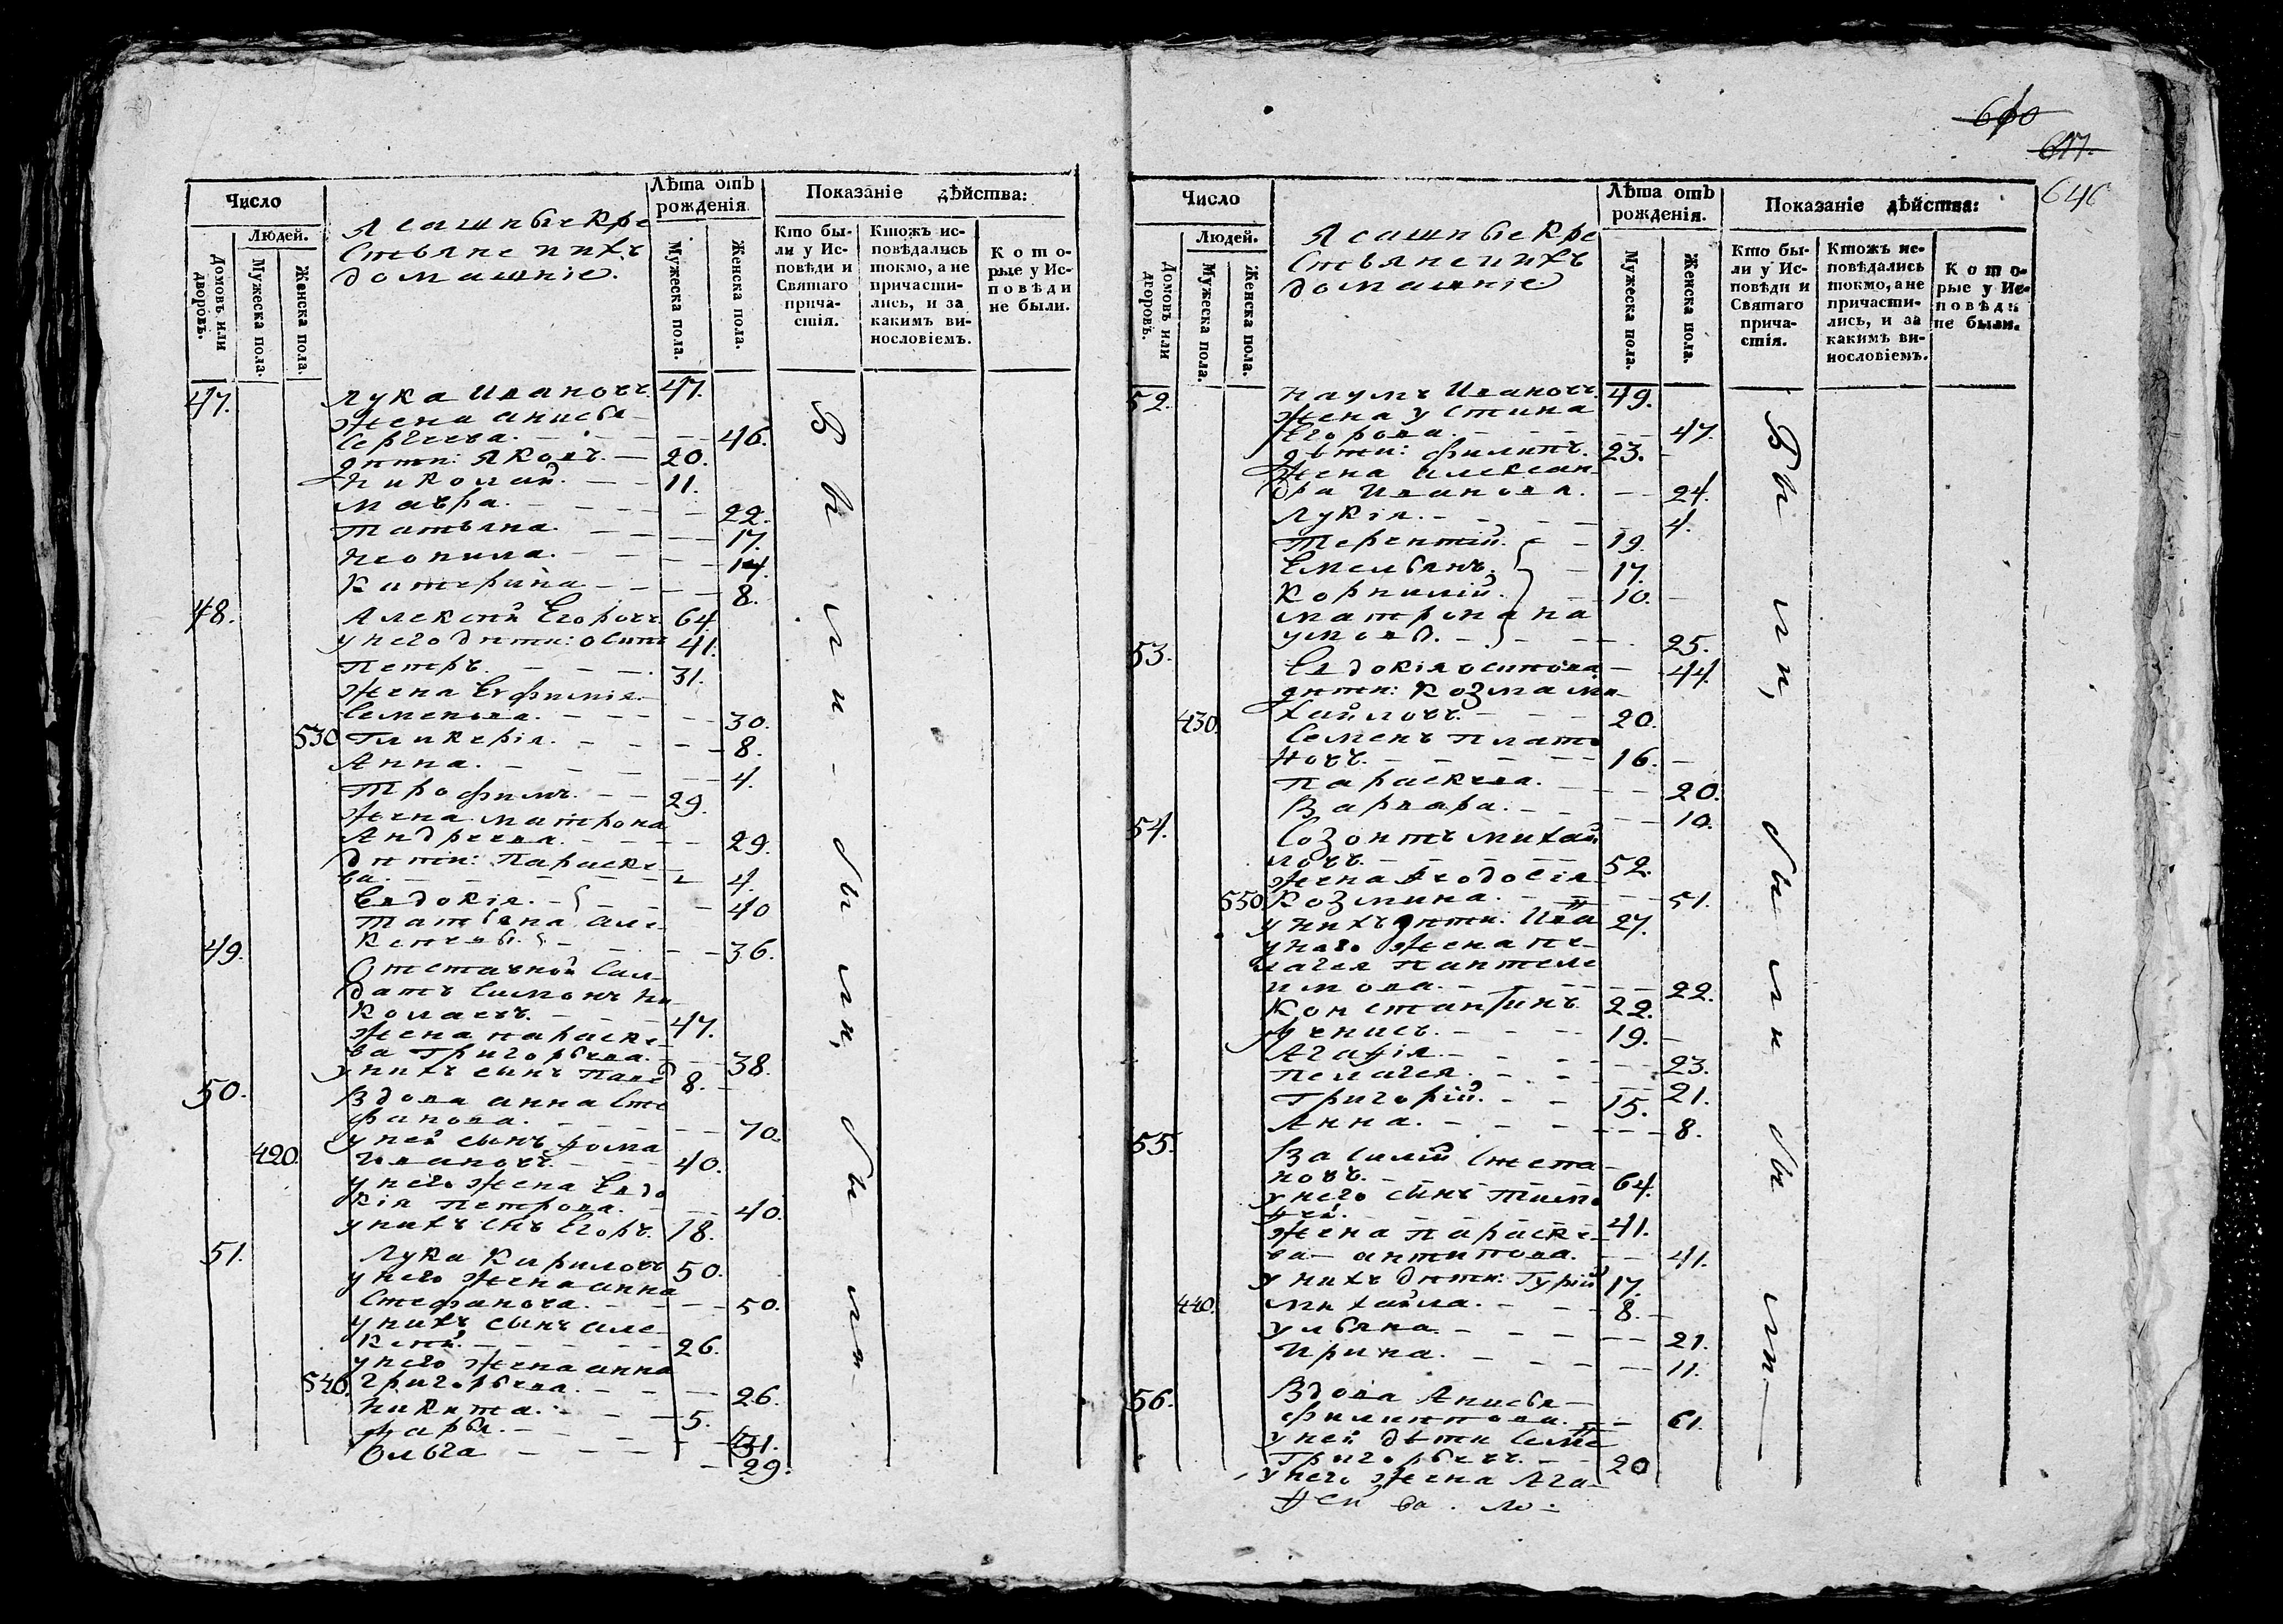 660
647.
646
Число
Людей.
Домовъ или дворовъ.
Мужеска пола.
Женска пола.
Ясашныекре
стьяне ихъ
домашніе.
Лѣта отъ
рожденія.
Мужеска пола.
Женска пола.
Показаніе дѣйства:
Кто бы-
ли у Ис-
повѣди и
Святаго
прича-
стія.
Ктожъ ис-
повѣдались
токмо, а не
причасти-
лись, и за
какимъ ви-
нословіемъ.
Кото-
рые у Ис-
повѣди
не были.
47. Лука Ивановъ. 47.
жена анисья
Сергеева. 46.
дѣти: Яковъ. 20.
Николай. 11.
Мавра. 22.
Татьяна. 17.
Неонила. 14.
Катерина 8.
48. Алексѣй Егоровъ 64.
у него дѣти: осипъ 41.
Петръ. 31.
жена Ефимія
Семенова. 30.
530 Гликерія. 8.
Анна. 4.
Трофимъ. 29.
жена матрона
Андреева. 29.
дѣти: Параске
ва. 4.
Евдокія. 40
Татьяна але
ксѣевы. 36.
49. Отставной Сал
датъ Симонъ Ни
колаевъ. 47.
жена параске
ва Григорьева. 38.
у нихъ сынъ Павел 8.
50. Вдова анна Сте
фанова. 70.
у ней сынъ фома
420. Ивановъ. 40.
у него жена Евдо
кія Петрова. 40.
у нихъ снъ Егоръ. 18.
51. Лука Кириловъ 50.
у него жена анна
Стефанова. 50.
у нихъ сынъ але
ксѣй. 26.
у него жена анна
540. григорьева. 26.
Никита. 5.
Марья. 31.
Ольга 29.
Были были, были
Число
Людей.
Домовъ или дворовъ.
Мужеска пола.
Женска пола.
Ясашныекре
стьянеихъ
домашніе
Лѣта отъ
рожденія.
Мужеска пола.
Женска пола.
Показаніе дѣйства:
Кто бы-
ли у Ис-
повѣди и
Святаго
прича-
стія.
Ктожъ ис-
повѣдались
токмо, а не
причасти-
лись, и за
какимъ ви-
нословіемъ.
Кото-
рые у Ис-
повѣди
не были.
52. Наумъ Ивановъ. 49.
жена устина
Егорова. 47.
дѣти: филипъ. 23.
жена алексан
дра Иванова. 24.
Лукія. 4.
Терентій. 19.
Емельянъ. 17.
Корнилій. 10.
матрона на
умова. 25.
53. Евдокія осипова 44.
дѣти: Козма ми
430. хайловъ. 20.
Семенъ плато
новъ. 16.
Параскева. 20.
Варвара. 10.
54. Созонтъ михай
ловъ. 52.
жена Феодосія
550 Козмина. 51.
у нихъ дѣти: Иван 27.
у него жена пе
лагея Пантеле
имова. 22.
Константинъ 22.
Денисъ. 19.
Агафія. 23.
Пелагея. 21.
Григорій. 15.
Анна. 8.
55. Василій Степа
новъ. 64.
у него сынъ тимо
фей. 41.
жена параске
ва антипова. 41.
у нихъ дѣти: Гурій 17.
440. михайла. 8.
Ульяна. 21.
Ирина. 11.
56. Вдова Анисья
филиппова. 61.
у ней дѣти Семе
Григорьевъ. 20
у него жена Ага
Были, были были